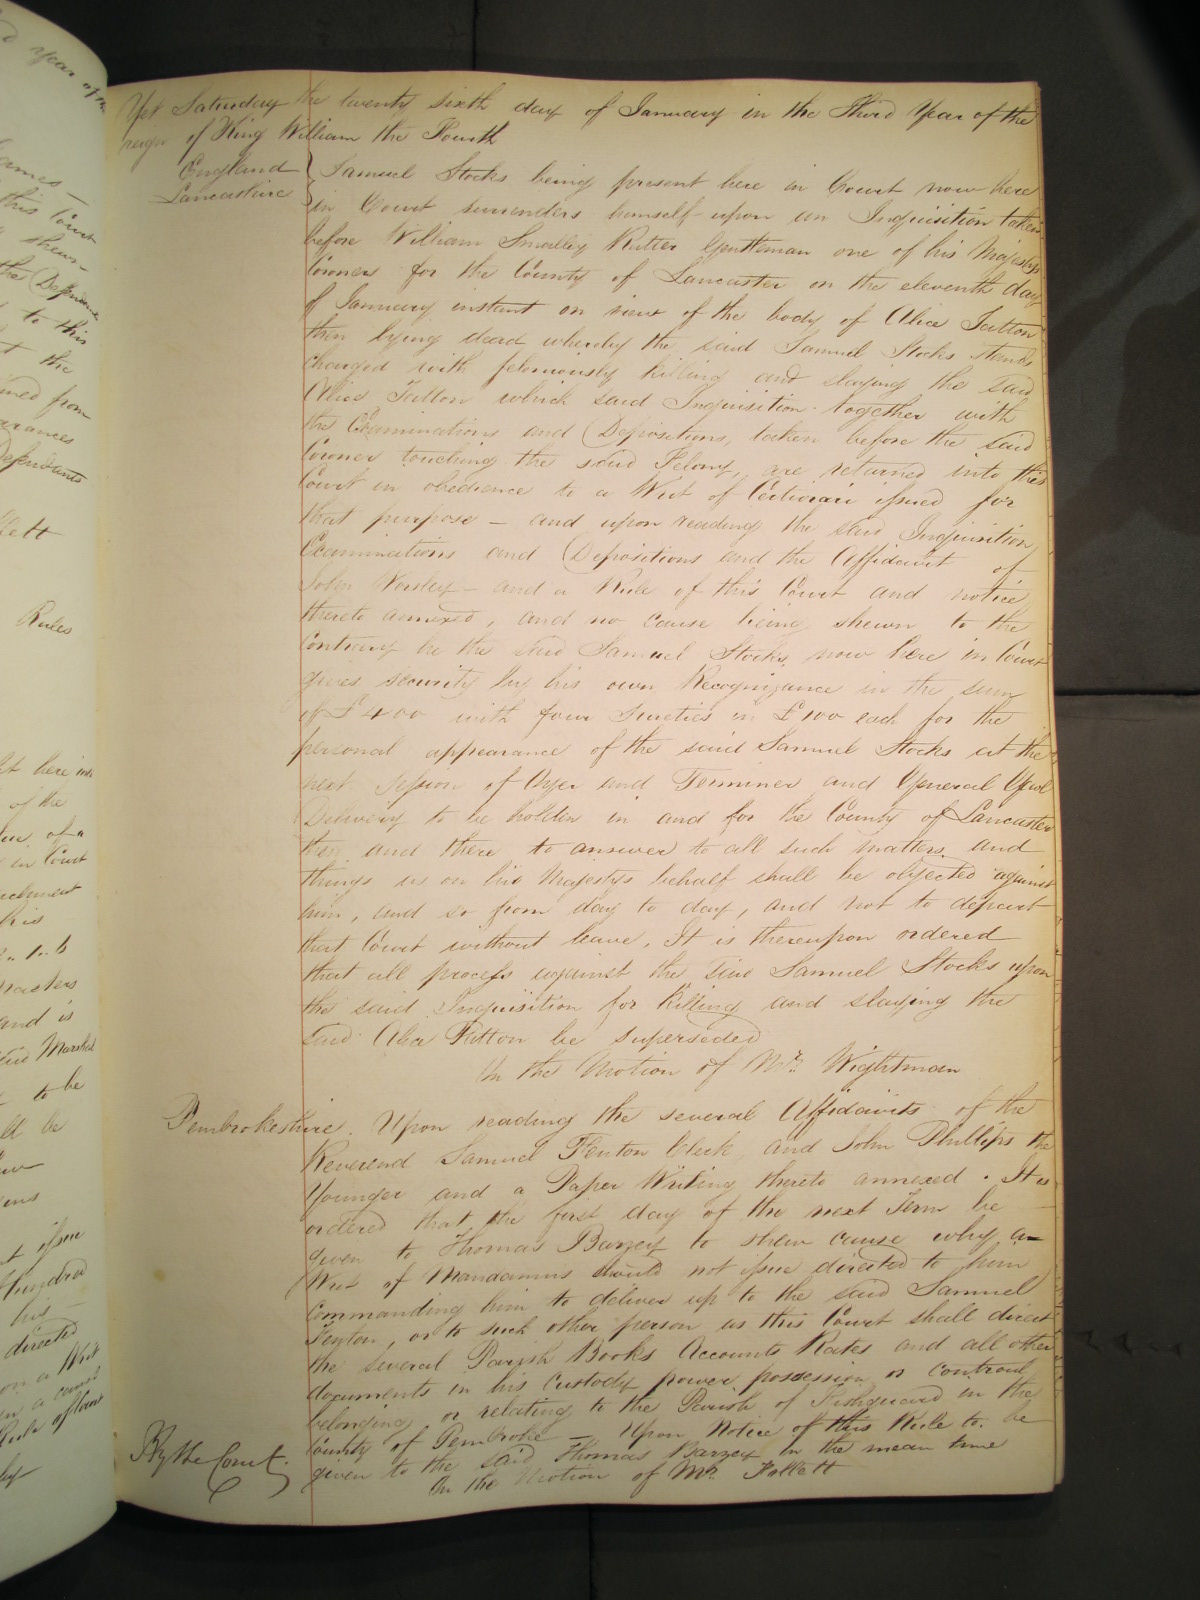 year of the
ames
this Court
shew
the Defendant
to this
the
ined from
arances
Defendants
lett
Rules
it here into
of the
of a
in Court
achment
his
Masters
and is
said Marshal
to be
ll be
t issue
Hundred
his
directed
on a Writ
Rule of Court
by
Yet Saturday the twenty sixth day of January in the Third Year of the
reign of King William the Fourth
England
Lancashire
Samuel Stocks being present here in Court now here
in Court surrenders himself upon an Inquisition taken
before William Smalley Rutter Gentleman one of his Majestys
Coroners for the County of Lancaster on the eleventh day
of January instant on view of the body of Alice Tatton
then lying dead whereby the said Samuel Stocks stands
charged with feloniously killing and slaying the said
Alice Tatton which said Inquisition together with
the Examinations and Depositions, taken before the said
Coroner touching the said Felony, are returned into this
Court in obedience to a Writ of Certiorari issued for
that purpose – and upon reading the said Inquisition
Examinations and Depositions and the Affidavit of
John Worsley – and a Rule of this Court and notice
thereto annexed, and no cause being shewn to the
contrary he the said Samuel Stocks now here in Court
gives security by his own Recognizance in the sum
of £400 with four Sureties in £100 each for the
personal appearance of the said Samuel Stocks at the
next session of Oyer and Terminer and General Gaol
Delivery to be holden in and for the County of Lancaster
then and there to answer to all such matters and
things as on his Majestys behalf shall be objected against
him, and so from day to day, and not to depart
that Court without leave. It is thereupon ordered
that all process against the said Samuel Stocks upon
the said Inquisition for killing and slaying the
said Alice Tatton be superseded
On the Motion of Mr. Wightman
Pembrokeshire. Upon reading the several Affidavits of the
Reverend Samuel Fenton Clerk, and John Phillips the
Younger and a Paper Writing thereto annexed. It is
ordered that the first day of the next Term be
given to Thomas Barzey to shew cause why a
Writ of Mandamus should not issue directed to him
commanding him to deliver up to the said Samuel
Fenton, or to such other person as this Court shall direct
the several Parish Books Accounts Rates and all other
documents in his custody power possession or controul
belonging or relating to the Parish of Fishguard in the
County of Pembroke – Upon Notice of this Rule to be
given to the said Thomas Barzey in the mean time
On the Motion of Mr. Follett
By the Court.